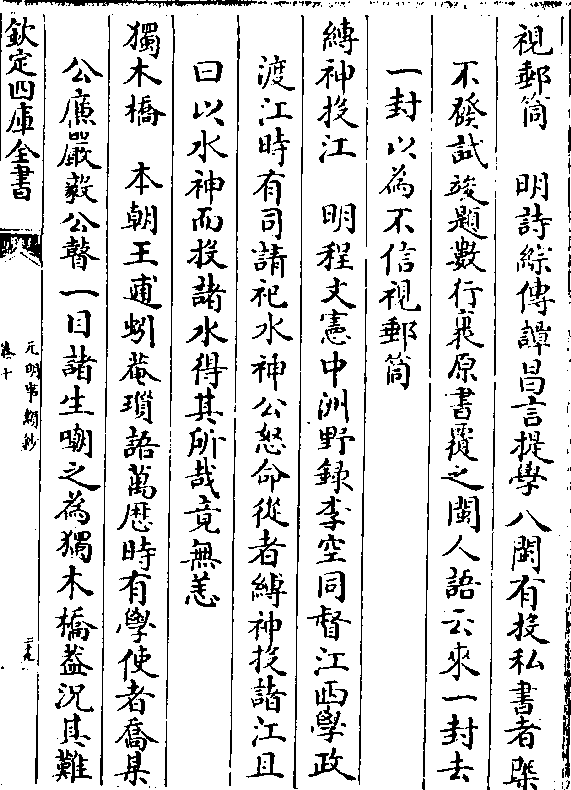 視郵筒　明詩綜傳謔昌言提學八閩有投私書者槩
不發試竣題數行裹原書覆之閩人語云來一封去
一封以為不信視郵筒
縛神投江　明程文憲中洲野錄李空同督江西學政
渡江時有司請祀水神公怒命從者縛神投諸江且
曰以水神而投諸水得其所哉竟無恙
獨木橋　本朝王逋蚓菴瑣語萬厯時有學使者喬某
公廉嚴毅公瞽一目諸生嘲之為獨木橋葢況其難
欽定四庫全書
元明事類鈔
卷十
二十九